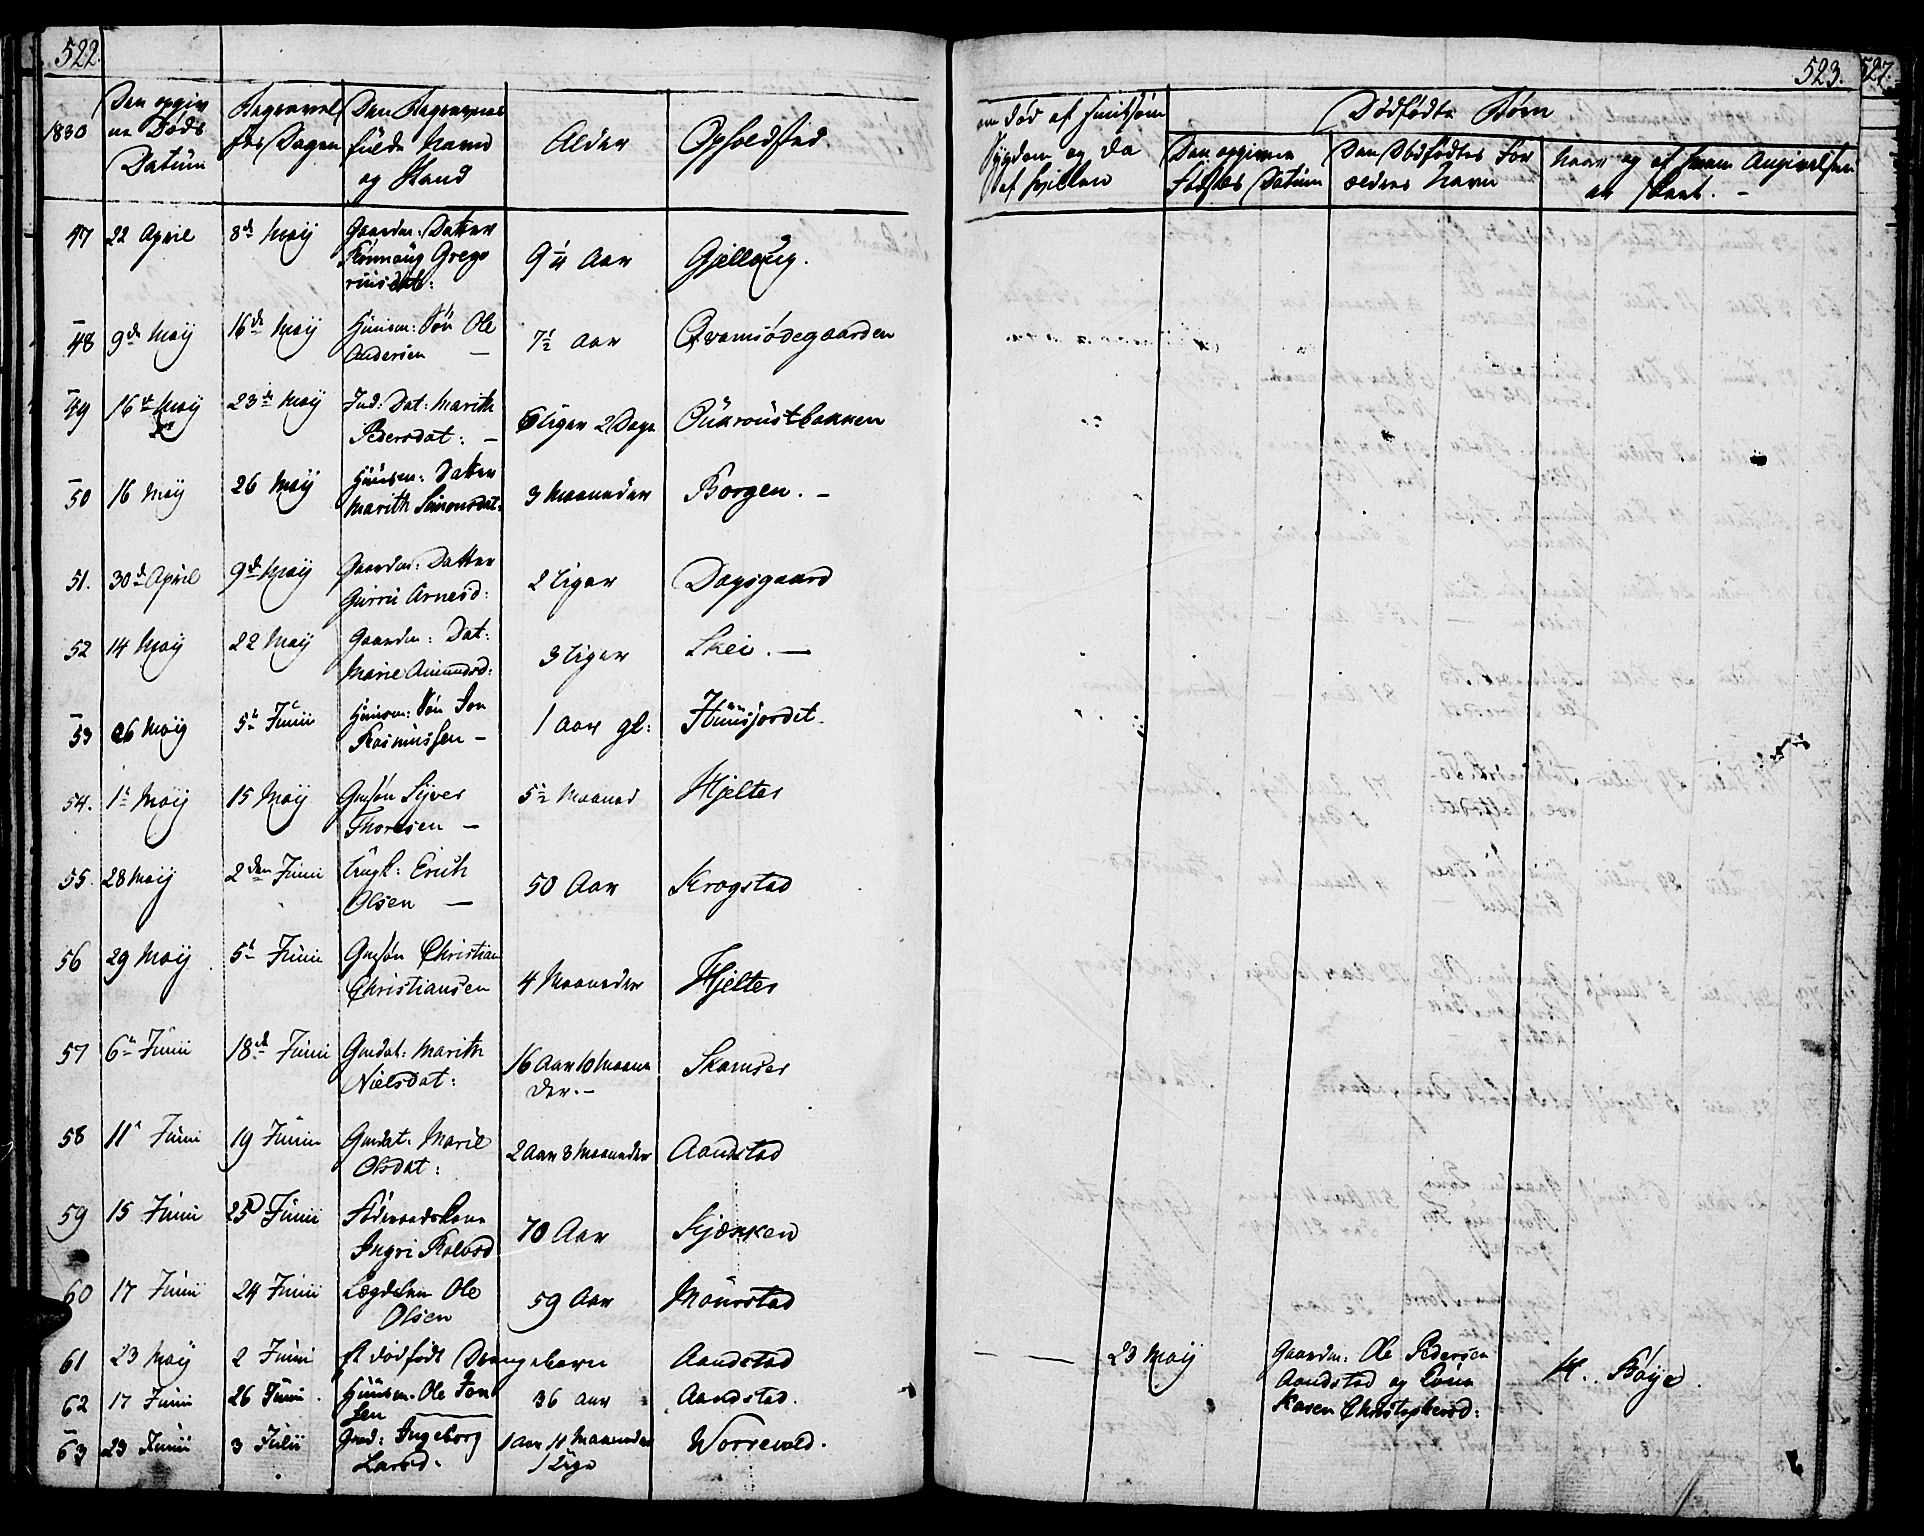 522.
1830
Den opgiv
ne Døds
Datum
Begravel
ses Dagen
Den Begravnes
fulde Navn
og Stand
Alder
Opholdsted.
47 22 April 8de Maij Gaardm: Datter
Rønnaug Grego
riusdat: 9 1/4 Aar Gjelloug.
48 9de Maij 16de Maij Huusm: Søn Ole
Andersen — 7 1/2 Aar Qvamsødegaarden
49 16de Maij 23de Maij Ind: Dat: Marith
Pedersdat: — 6 Uger 2 Dage
50 16 Maij 26 Maij Huusm: Datter
Marith Simonsdat: 3 Maaneder Borgen. —
51. 30de April 9de Maij Gaardm: Datter
Gurru Arnesd: 2 Uger Dagsgaard
52 14 Maij 22 Maij Gaardm: Dat:
Marie Amundsd: 3 Uger Skei. —
53 26 Maij 5te Junii Huusm: Søn Jon
Rasmussen — 1 Aar gl: Huusjordet.
54. 1te Maij 15 Maij Gmsøn Syver
Thoresen — 5 1/2 Maaned Hjelter
55. 28 Maij 2den Junii Ungk: Erich
Olsen — 50 Aar Krogstad
56 29 Maij 5te Junii Gmsøn Christian
Christiansen 4 Maaneder Hjelter
57 6te Junii 18de Junii Gmdat: Marith
Nielsdat: 16 Aar 10 Maane
der. — Skamser
58 11te Junii 19 Junii Gmdat: Marie
Olsdat: 2 Aar 3 Maaneder Aandstad
59 15 Junii 25 Junii Føderaadskone
Ingri Rolvsd 70 Aar Kjørken
60 17 Junii 24 Junii Lægdslem Ole
Olsen 59 Aar
61 23 Maij 2 Junii et dødfødt Drengebarn Aandstad
62 17 Junii 26 Junii. Huusm. Ole Jon
sen 36 Aar Aandstad.
63 23 Junii 3 Julii Gmd: Ingeborg
Larsd. 1 Aar 11 Maaneder
1 Uge Worrevold.
523.
527.
om død af smitsom
Sygdom og da
af hvilken
Dødfødte Børn
Den opgivne
Fødsels Datum
Den Dødfødtes For
ældres Navn
Naar og af hvem Angivelsen
er skeet. —
— — 23 Maij Gaardm: Ole Pedersen
Aandstad og Kone
Karen Christophersd: H. Bøije.